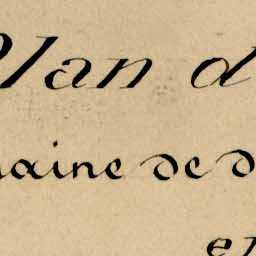 Plan d
maine de d
en